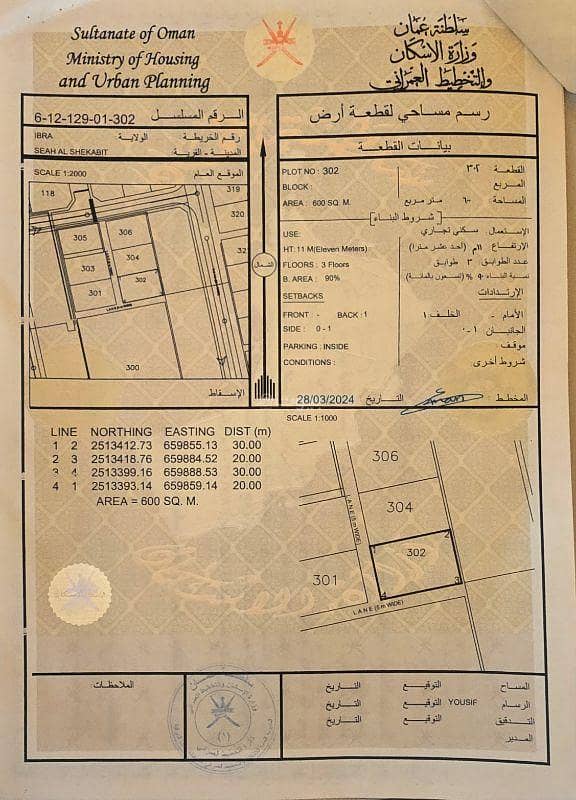 Sultanate of Oman
Ministry of Housing
and Urban Planning
سلطنة عمان
وزارة الإسكان
والتخطيط العمراني
6-12-129-01-302 الرقم المسلسل
IBRA الولاية: رقم الخريطة
SEAH AL SHEKABIT المدينة - القرية:
SCALE 1:2000 الموقع العام
118
319
320
305
306
303
304
301
302
300
الإسقاط
الشمال
رسم مساحي لقطعة أرض
بيانات القطعة
PLOT NO : 302 القطعة: ٣٠٢
BLOCK : المربع
AREA : 600 SQ. M. المساحة: ٦٠٠ متر مربع
شروط البناء
USE: الإستعمال: سكني تجاري
HT: 11 M(Eleven Meters) الإرتفاع ١١م (أحد عشر مترا)
FLOORS : 3 Floors عدد الطوابق ٣ طوابق
B. AREA : 90% نسبة البناء ٩٠% (تسعون بالمائة)
SETBACKS الإرتدادات
FRONT : - BACK : 1 الأمام - الخلف ١
SIDE : 0 - 1 الجانبان ٠-١
PARKING : INSIDE موقف:
CONDITIONS : شروط أخرى:
28/03/2024 التاريخ المخطط
SCALE 1:1000
LINE NORTHING EASTING DIST (m)
1 2 2513412.73 659855.13 30.00
2 3 2513418.76 659884.52 20.00
3 4 2513399.16 659888.53 30.00
4 1 2513393.14 659859.14 20.00
AREA = 600 SQ. M.
306
304
LANE (6 m WIDE)
1
2
302
301
3
4
LANE (6 m WIDE)
الملاحظات
المساح التوقيع التاريخ
الرسام YOUSIF التوقيع التاريخ
التدقيق التوقيع التاريخ
المدير